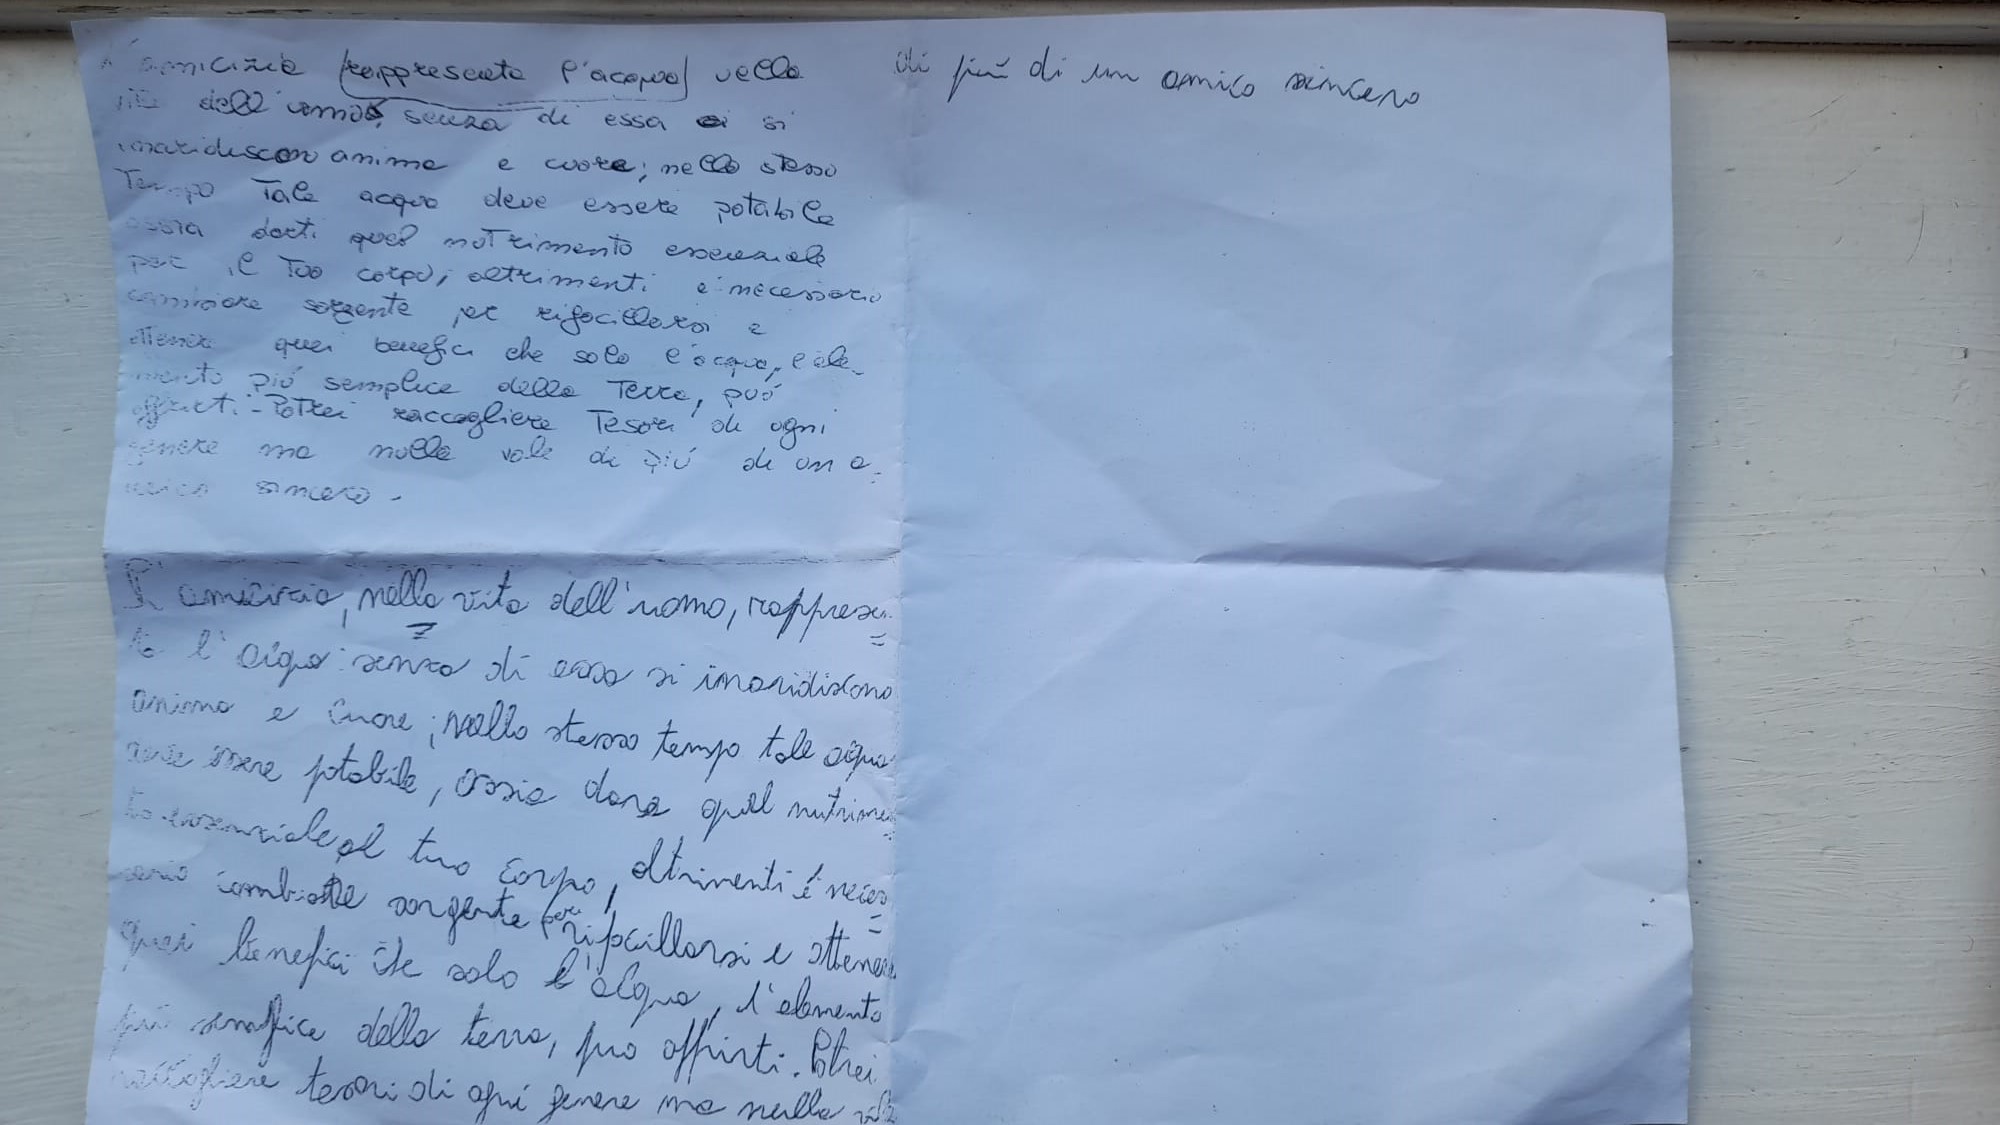 L'amicizia (rappresenta l'acqua) nella
vita dell'uomo, senza di essa si
inaridiscono anima e cuore; nello stesso
Tempo Tale acqua deve essere potabile
ossia darti quel nutrimento essenziale
per il Tuo corpo, altrimenti è necessario
cambiare sorgente per rifocillarsi e
ottenere quei benefici che solo l'acqua, l'ele-
mento più semplice della Terra, può
offrirti - Potrei raccogliere Tesori di ogni
genere ma nulla vale di più di un a-
mico sincero -
L'amicizia, nella vita dell'uomo, rappresen=
ta l'acqua: senza di essa si inaridiscono
anima e cuore; nello stesso tempo tale acqua
deve essere potabile, ossia dare quel nutrimen=
to essenziale al tuo corpo, altrimenti è neces=
sario cambiare sorgente per rifocillarsi e ottenere
quei benefici che solo l'acqua, l'elemento
più semplice della terra, può offrirti. Potrei
raccogliere tesori di ogni genere ma nulla vale
di più di un amico sincero